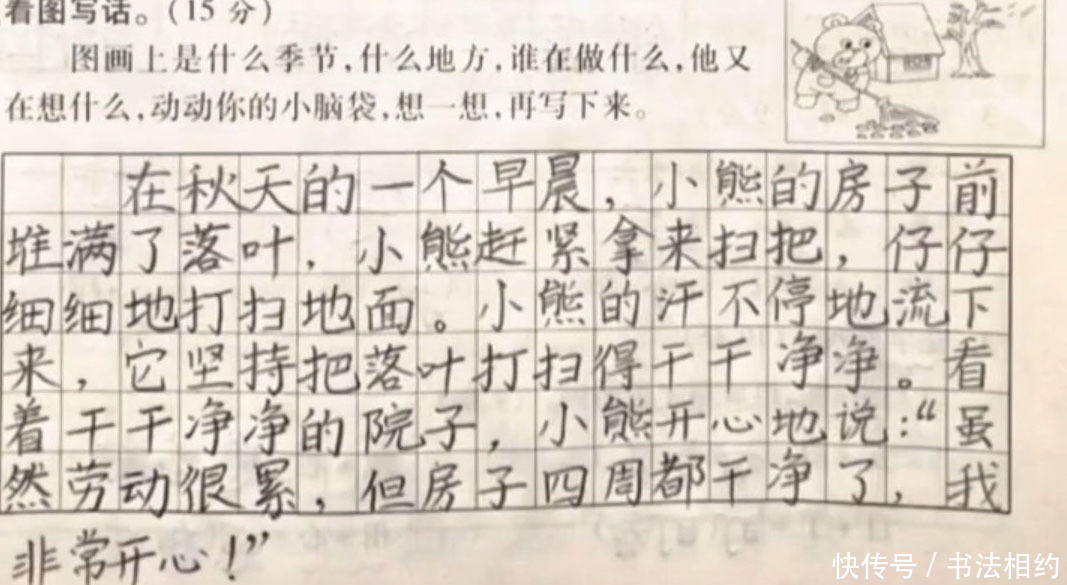 看图写话。(15 分)
图画上是什么季节,什么地方,谁在做什么,他又
在想什么,动动你的小脑袋,想一想,再写下来。
在秋天的一个早晨，小熊的房子前
堆满了落叶，小熊赶紧拿来扫把，仔仔
细细地打扫地面。小熊的汗不停地流下
来，它坚持把落叶打扫得干干净净。看
着干干净净的院子，小熊开心地说：“虽
然劳动很累，但房子四周都干净了，我
非常开心！”
快传号 / 书法相约